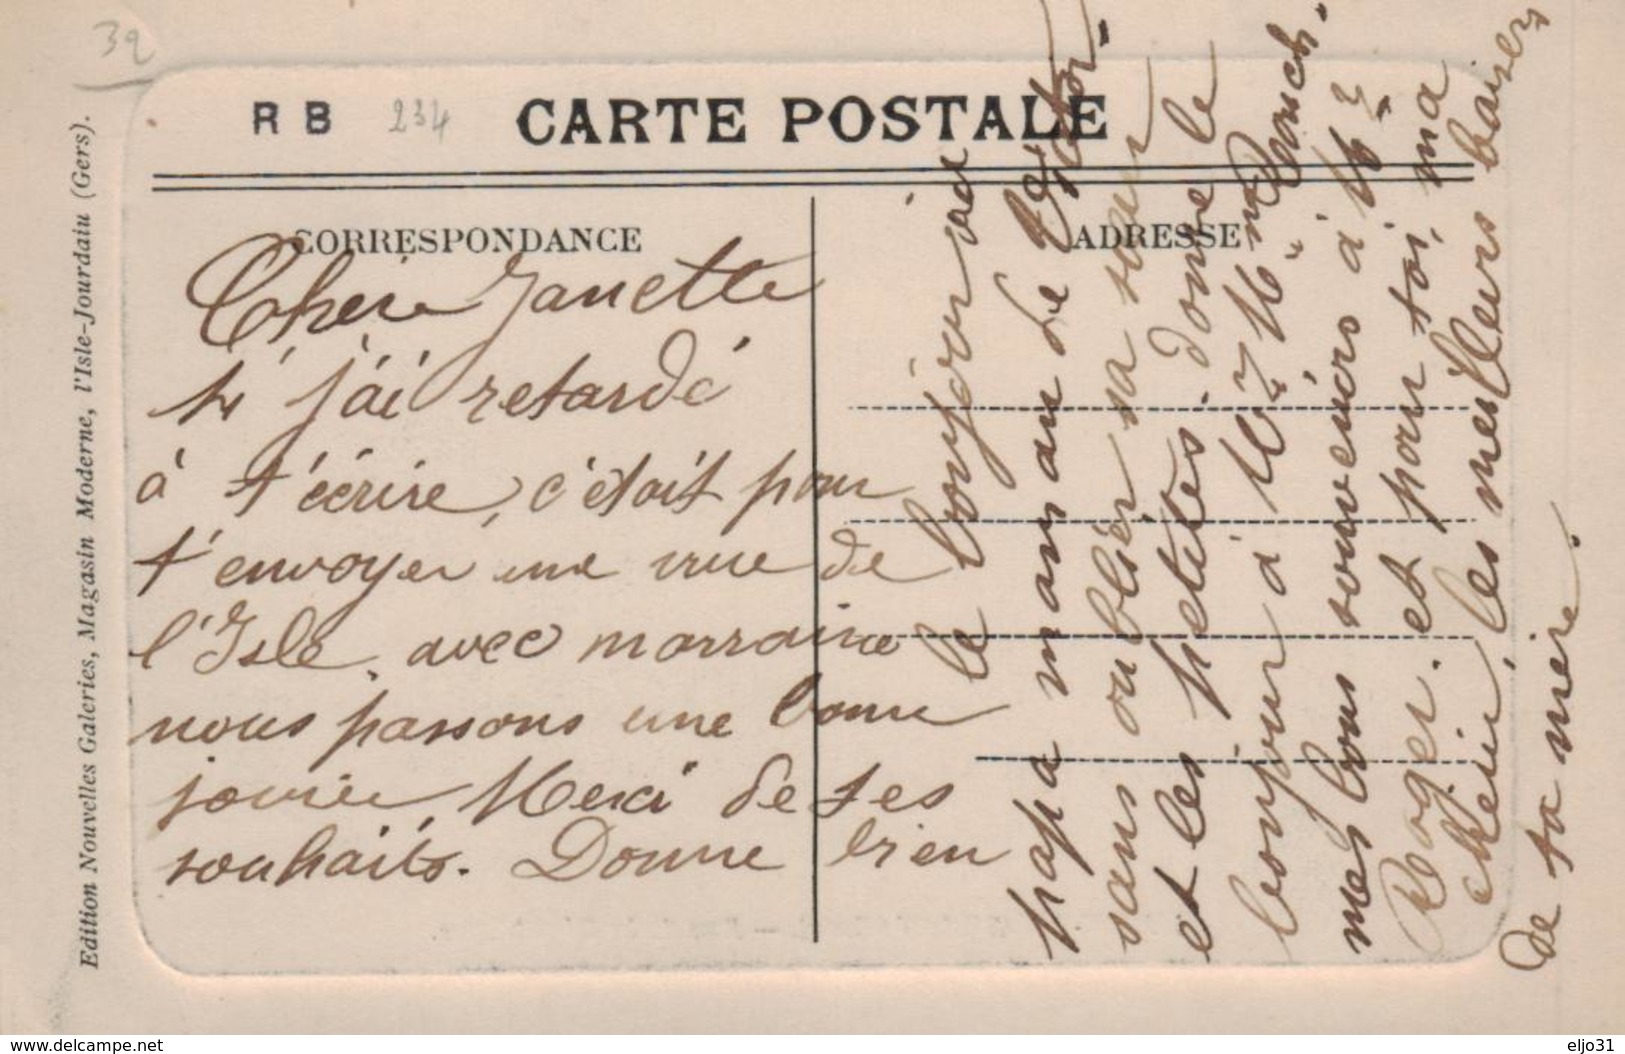 39
R B 234 CARTE POSTALE
CORRESPONDANCE
ADRESSE
Chérie Janette
si j'ai retardé
à t'écrire, c'était pour
t'envoyer une vue de
l'Isle, avec marraine
nous passons une bonne
journée Merci de tes
souhaits. Donne bien
le bonjour
papa maman de
sans oublier sa sœur
et les petites. donne le
bonjour à Mr & Mme
mes bons souvenirs à Mr
Roger. et pour toi, ma
chérie, les meilleurs baisers
de ta mère.
Edition Nouvelles Galeries, Magasin Moderne, l'Isle-Jourdain (Gers).
www.delcampe.net
eljo31